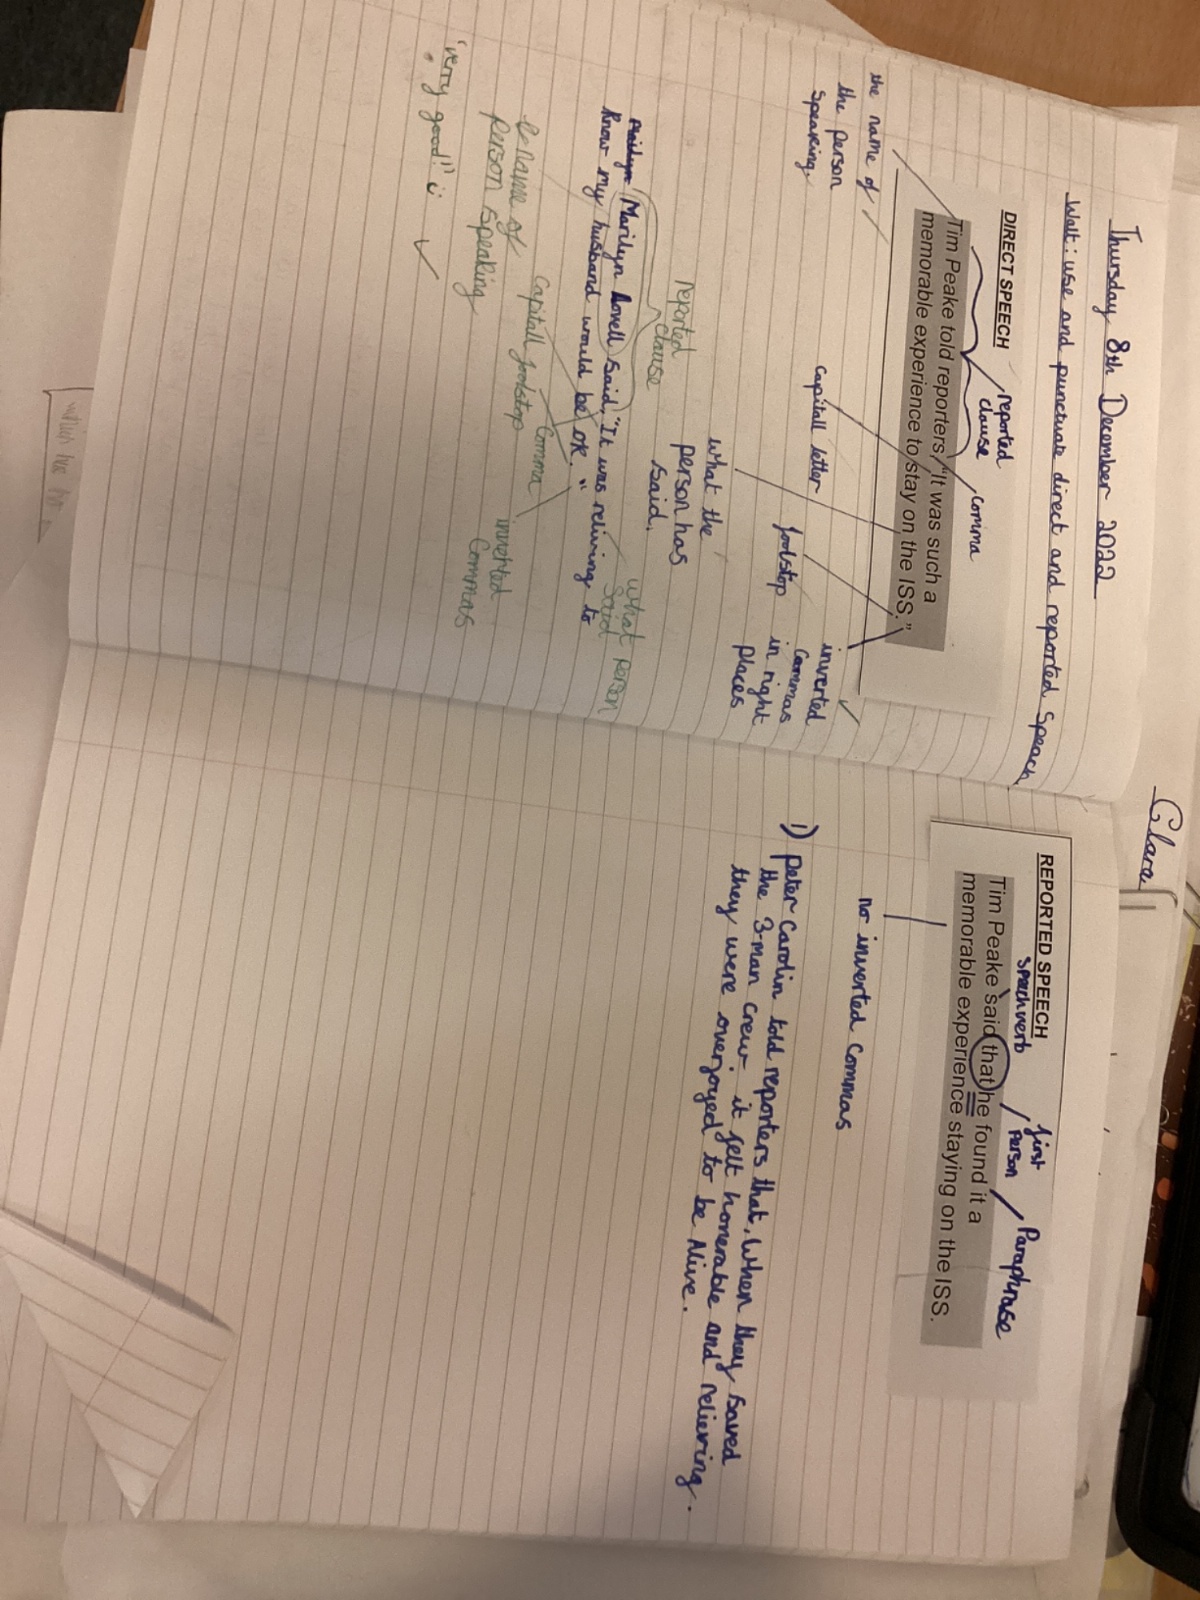 Thursday 8th December 2022
Walt: use and punctuate direct and reported Speach
DIRECT SPEECH
reported
clause
comma
Tim Peake told reporters, "It was such a
memorable experience to stay on the ISS."
the name of
the person
speaking.
capitall letter
foolstop
inverted
commas
in right
places
what the
person has
said.
reported
clause
Marilyn Lovell said, "It was reliving to
know my husband would be ok."
what person
said
name of
person speaking
Capitall
foolstop
Comma
inverted
Commas
'very good!'
Clara
REPORTED SPEECH
speach verb
first
person
Paraphrase
Tim Peake said that he found it a
memorable experience staying on the ISS.
no inverted commas
1) Peter Carolin told reporters that, When they saved
the 3-man crew it felt honerable and relieving.
they were overjoyed to be Alive.
which